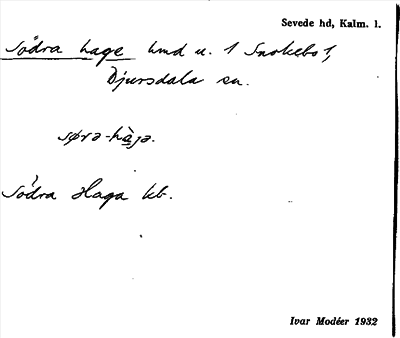 Sevede hd, Kalm. l.
Södra hage hmd u. 1 Snokebo 1,
Djursdala sn.
sørə-hàgə.
Södra Haga kb.
Ivar Modéer 1932